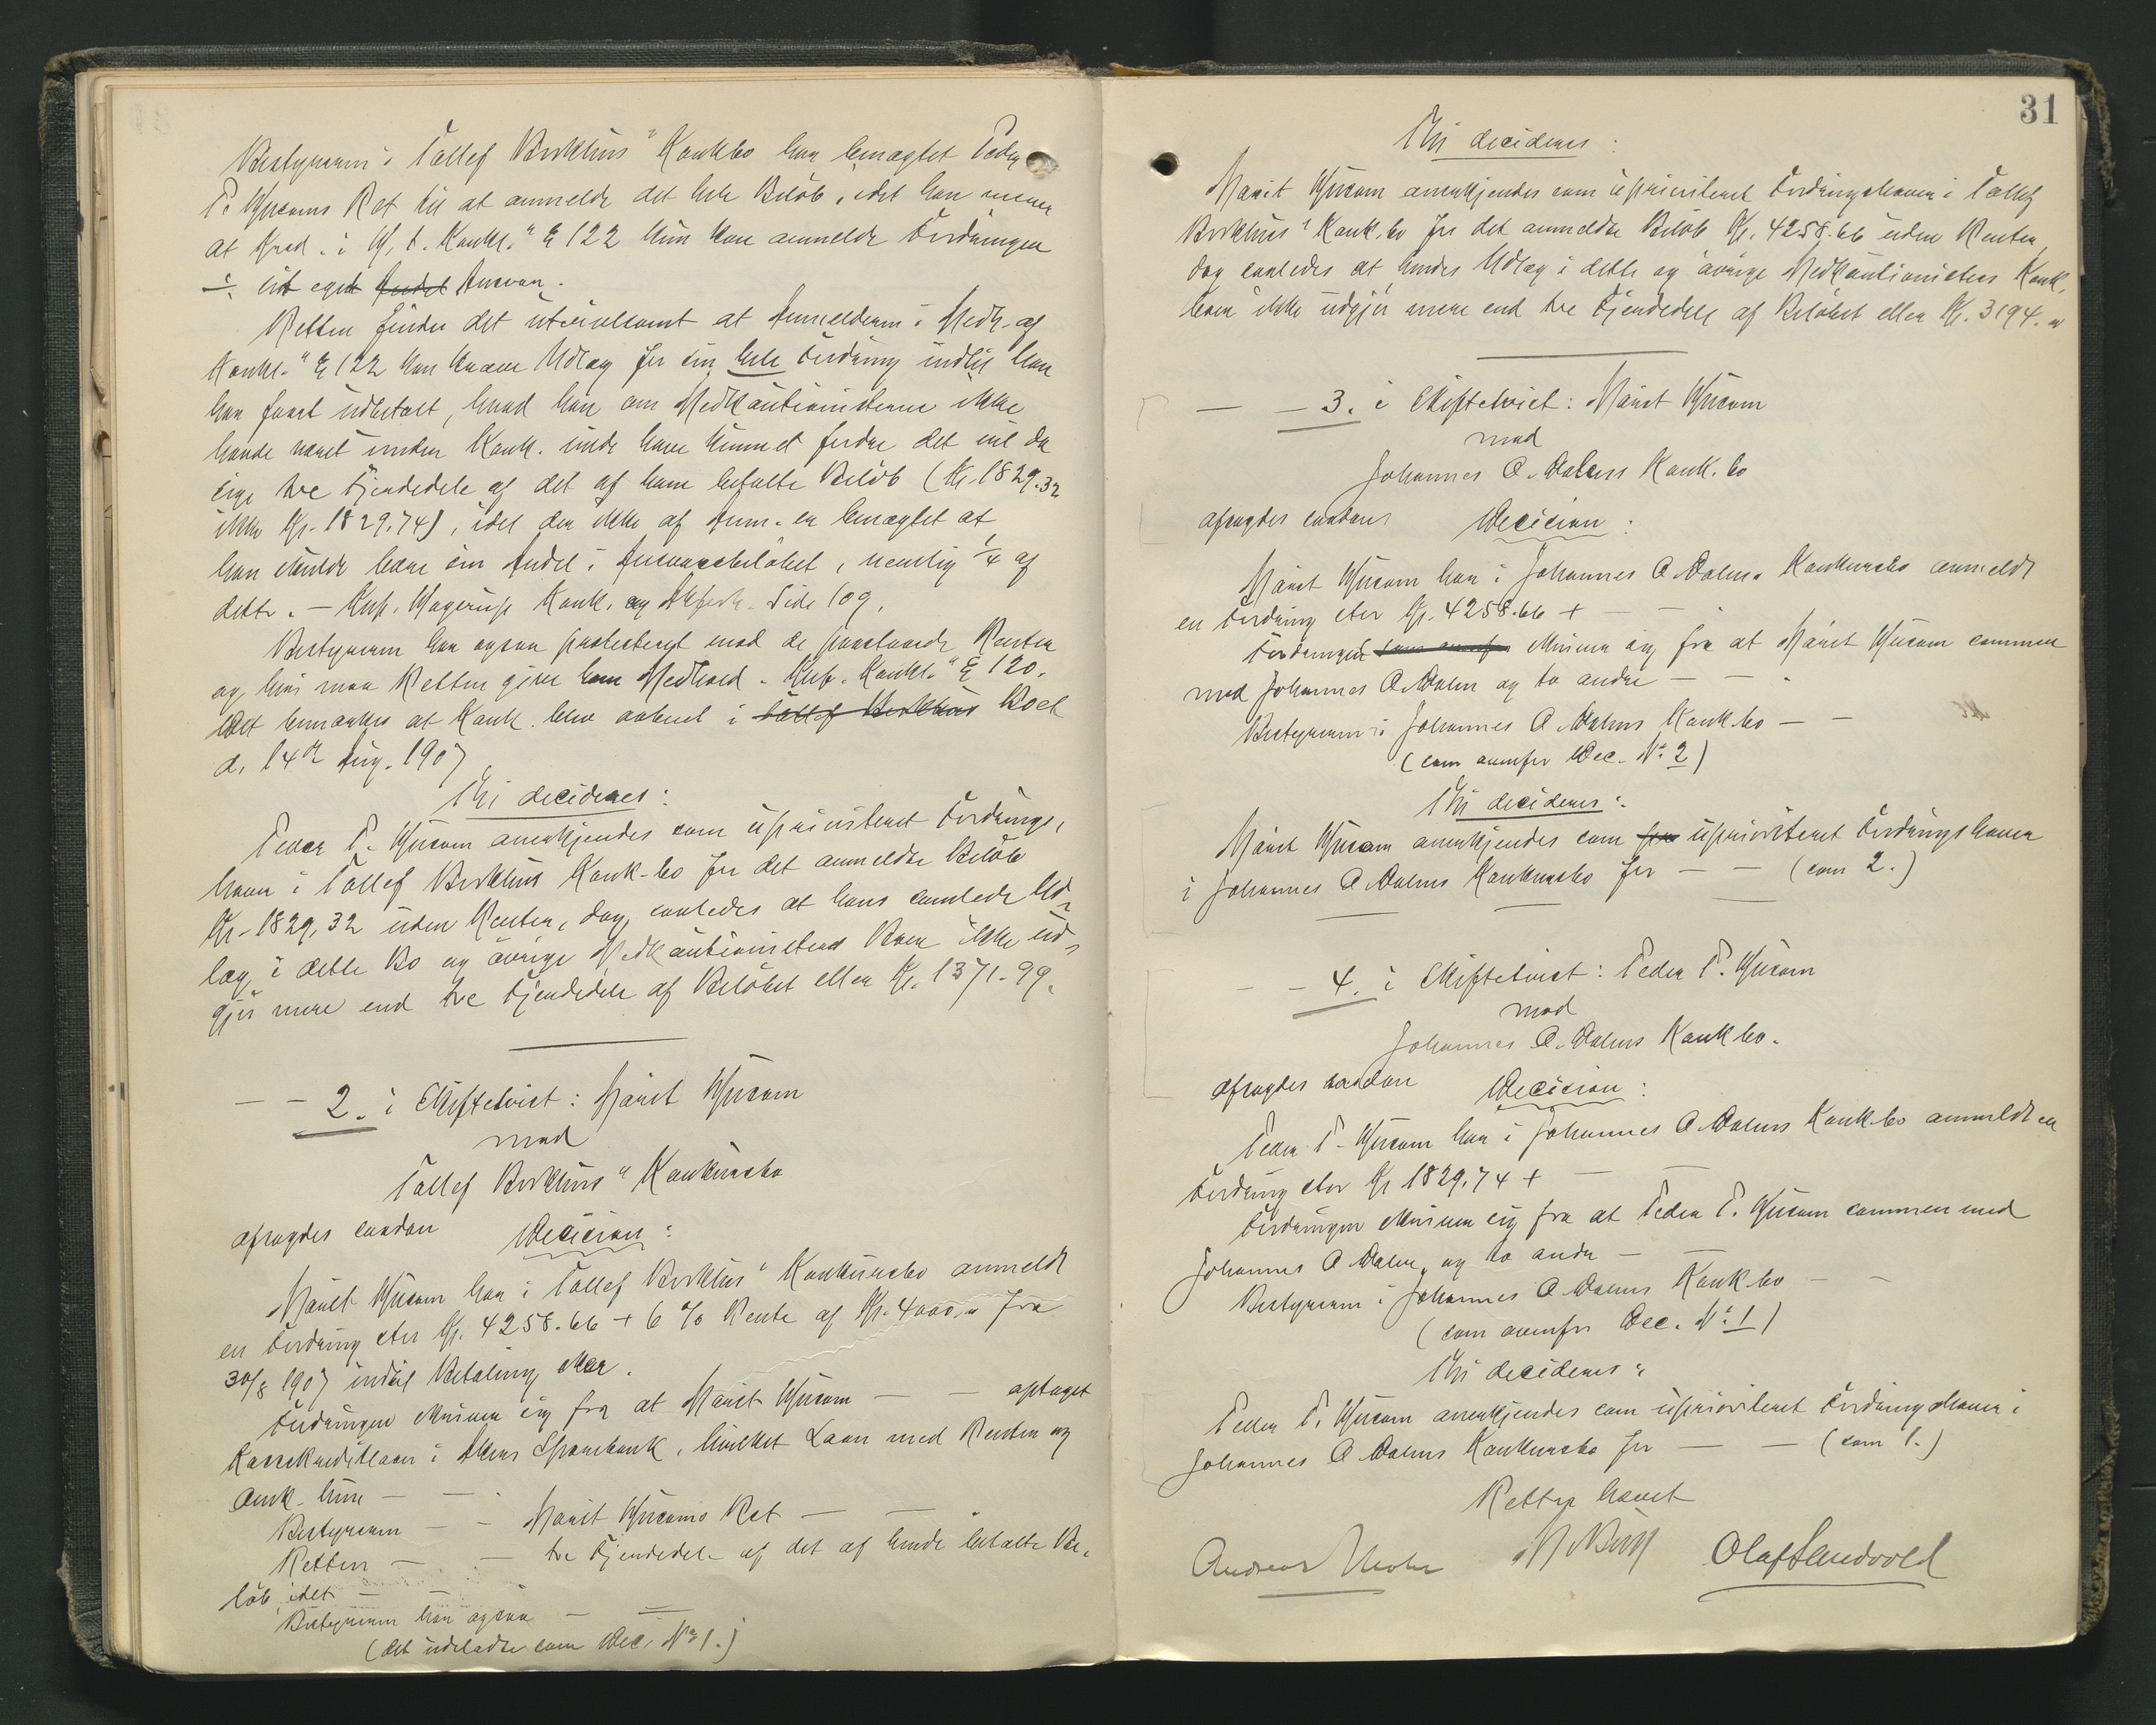 Bestyreren i Tollef Birkelins" Konkbo har benægtet Peder
P. Husoms Ret til at anmelde det hele Beløb, idet han mener
at Kred. i H. t. Konkl." § 122 kun kan anmelde Fordringen
÷ sit eget Andel Ansvar.
Retten finder det utvivlsomt at Anmelderen i Medh. af
Konkl." § 122 kan kræve Udlæg for sin hele Fordring indtil han
har faaet udbetalt, hvad han om Medkautionisterne ikke
havde været under Konk. vilde have kunnet fordre det vil da
sige tre Fjerdedele af det af ham betalte Beløb (Kr. 1829.32
ikke Kr. 1829.74), idet det ikke af Anm. er benægtet at
han skulde bære sin Andel i Ansvarsbeløbet, nemlig 1/4 af
dette. – Knfr. Hagerup Konk. og Akfork. Side 109.
Bestyreren har ogsaa protesteret mod de paastaaede Renter
og heri maa Retten give ham Medhold. Knfr. Konkl." § 120.
Det bemærkes at Konk. blev aabnet i Tollef Birkelins Boet
d. 14de Aug. 1907
Thi decideres:
Peder P. Husom anerkjendes som uprioriteret Fordrings-
haver i Tollef Birkelins Konk-bo for det anmeldte Beløb
Kr. 1829,32 uden Renter, dog saaledes at hans samlede Ud-
læg i dette Bo og øvrige Medkautionisters Boer ikke ud-
gjør mere end tre Fjerdedele af Beløbet eller Kr. 1371.99.
– – 2. i Skiftetvist: Marit Husom
mod
Tollef Birkelins" Konkursbo
afsagdes saadan Decision:
Marit Husom har i Tollef Birkelins" Konkursbo anmeldt
en Fordring stor Kr. 4258.66 + 6 % Rente af Kr. 4000," fra
30/8 1907 indtil Betaling sker.
Fordringen skriver sig fra at Marit Husom – – optaget
Kassekreditlaan i Spareбank, hvilket Laan med Renter og
Omk. hun – –
Bestyreren – – Marit Husoms Ret – –
Retten – – tre Fjerdedele af det af hende betalte Be-
løb, idet – –
Bestyreren har ogsaa – –
(det udeladte som Dec. No 1.)
31
Thi decideres:
Marit Husom anerkjendes som uprioriteret Fordringshaver i Tollef
Birkelins" Konk.bo for det anmeldte Beløb Kr. 4258.66 uden Renter,
dog saaledes at hendes Udlæg i dette og øvrige Medkautionisters Konk.
boer ikke udgjør mere end tre Fjerdedele af Beløbet eller Kr. 3194."
– – 3. i Skiftetvist: Marit Husom
mod
Johannes O. Dalens Konk.bo
afsagdes saadan Decision:
Marit Husom har i Johannes O. Dalens Konkursbo anmeldt
en Fordring stor Kr. 4258.66 + – –
Fordringen skriver sig fra at Marit Husom sammen
med Johannes O. Dalen og to andre – –
Bestyreren i Johannes O. Dalens Konk.bo – –
(som ovenfor Dec. No 2)
Thi decideres:
Marit Husom anerkjendes som for uprioriteret Fordringshaver
i Johannes O. Dalens Konkursbo for – – (som 2.)
– – 4. i Skiftetvist: Peder P. Husom
mod
Johannes O. Dalens Konkbo.
afsagdes saadan Decision:
Peder P. Husom har i Johannes O. Dalens Konk.bo anmeldt en
Fordring stor Kr 1829.74 + – –
Fordringen skriver sig fra at Peder P. Husom sammen med
Johannes O. Dalen og to andre – –
Bestyreren i Johannes O. Dalens Konk.bo – –
(som ovenfor Dec. No 1)
Thi decideres:
Peder P. Husom anerkjendes som uprioriteret Fordringshaver i
Johannes O. Dalens Konkursbo for – – (som 1.)
Retten hævet
Andreas Mohr Olaf Sandvold